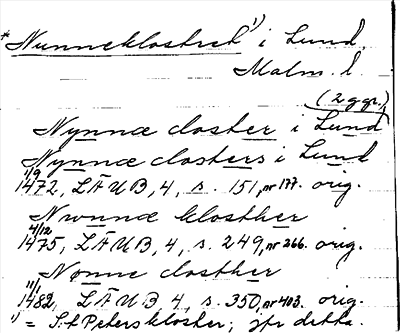 * Nunneklostret ¹) i Lund
Malm. l.
(2 ggr.)
Nynnæ closter i Lund
Nynnæ closters i Lund
1/9 1472, LÄUB, 4, s. 151, nr 177. orig.
Nwnnæ klosther
4/12 1475, LÄUB, 4, s. 249, nr 266. orig.
Nonne closther
11/1 1482, LÄUB, 4, s. 350, nr 403. orig.
¹) = S:t Peters kloster; jfr detta.